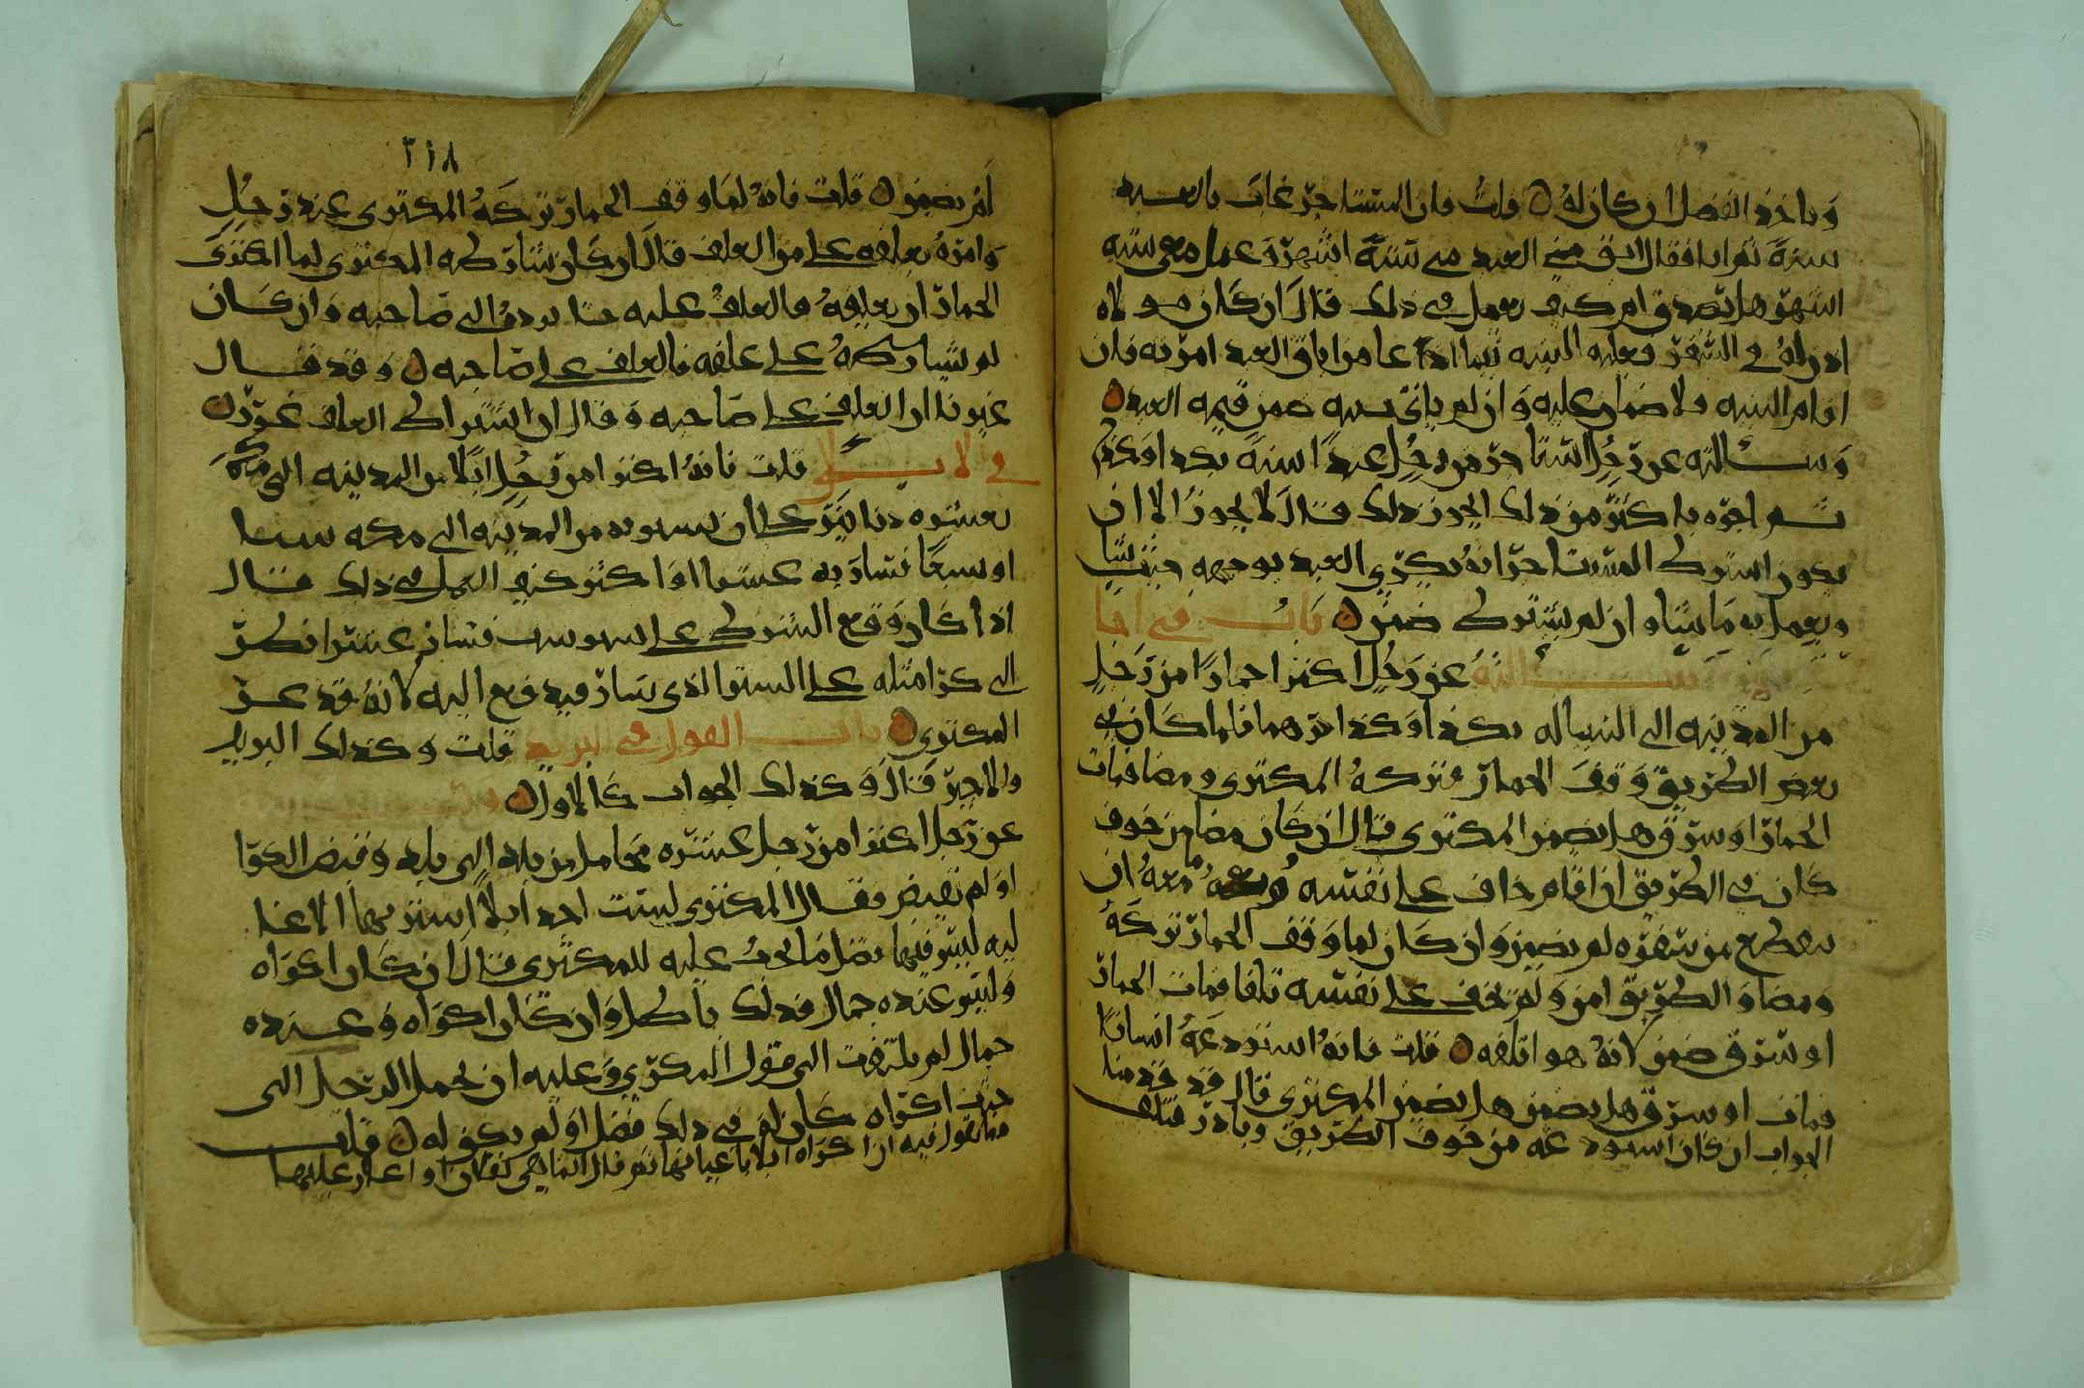 وياخذ الفضل ان كان له قلت فان المستاجر غاب بالعبد
سنة ثم ابا فقال ابق مني العبد من ستة اشهر وعمل معي ستة
اشهر هل يصدق ام كيف يعمل في ذلك قال ان كان مولاه
اذن له في السفر فعليه البينه عامر اباق العبد امرنه فان
اقام البينه ولا ضمان عليه وان لم يات ببينه ضمن قيمه العبد
وسالته عن رجل استاجر من رجل عبدا سنة بكذا وكذا
ثم اجره باكثر من ذلك ايجوز ذلك قال لا يجوز الا ان
يكون اشترط المستاجر انه يكري العبد يوجهه حيث شا
ويعمل به ما شا وان لم يشترط ضمن باب في
سالته عن رجل اكترا حمارا من رجل
من المدينه الى السياله بكذا وكذا درهما فلما كان في
بعض الطريق وقف الحمار فتركه المكتري ومضا فمات
الحمار او سرق هل يضمن المكتري قال ان كان مضا من خوف
كان في الطريق ان اقام خاف على نفسه معه ان
يقطع من سفره لم يضمن وان كان لما وقف الحمار تركه
ومضا والطريق امن ولم يخف على نفسه تلفا فمات الحمار
او سرق ضمن لانه هو اتلفه قلت فانه استودعه انسانا
فمات او سرق هل يضمن هل يضمن المكتري قال قد قدمنا
الجواب ان كان استودعه من خوف الطريق وبادر فتلف
٢١٨
لم يضمن قلت فانه لما وقف الحمار تركه المكتري عند رجل
وامره يعلفه على من العلف قال ان كان شارطه المكتري لما اكترى
الحمار ان يعلفه فالعلف عليه حتا يرده الى صاحبه وان كان
لم يشارطه على علفه فالعلف على صاحبه وقد قال
غيرنا ان العلف على صاحبه وقال ان اشتراط العلف غرر
في لا قلت فانه اكترا من رجل ابلا من المدينه الى مكة
بعشره دنانير على ان يسير به من المدينه الى مكه ستا
او سبعا فسار به عشرا او اكثر كيف العمل في ذلك قال
اذا كان وقع الشرط على سير ست فسار عشرا نظر
الى كرا مثله على السير الذي سار فيدفع اليه لانه قد غر
المكتري باب القول في البريد قلت وكذلك البريد
والاجير قال وكذلك الجواب كالاول
عن رجل اكترا من رجل عشره محامل من بلد الى بلد وقبض الكرا
او لم يقبض فقال المكتري ليست اجد ابلا اشتريها الا غدا
فيها فضل ما يجب عليه للمكتري قال ان كان اكراه
وليس عنده جمال فذلك باطل وان كان اكراه وعنده
جمال لم يلتفت الى قول المكري وعليه ان يحمل الرجل الى
حيث اكراه كان له في ذلك فضل او لم يكن له قلت
فما تقول فيه اذا اكراه ابلا باعيانها ثم قال عليها